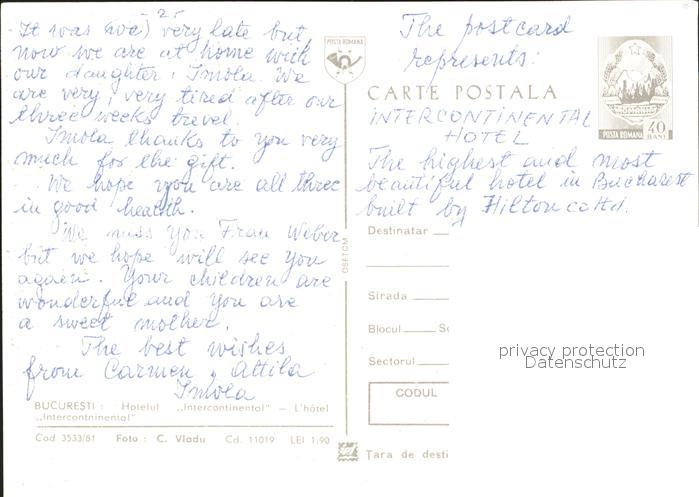 It was very late but,
now we are at home with
our daughter, Imola. We
are very, very tired after our
three weeks travel.
Imola thanks to you very
much for the gift.
We hope you are all three
in good health.
We miss you Frau Weber
but we hope will see you
again. Your children are
wonderful and you are
a sweet mother.
The best wishes
from Carmen, Attila
Imola
BUCUREȘTI : Hotelul „Intercontinental" – L'hôtel
„Intercontninental"
Cod 3533/81 Foto : C. Vladu Cd. 11019 LEI 1,90
OSETCM
POSTA ROMANA
The postcard
represents:
CARTE POSTALA
INTERCONTINENTAL
HOTEL
The highest and most
beautiful hotel in Bucharest
built by Hilton
POSTA ROMANA 40
BANI
Destinatar
Strada
Blocul Sc
Sectorul
CODUL
Țara de desti
privacy protection
Datenschutz